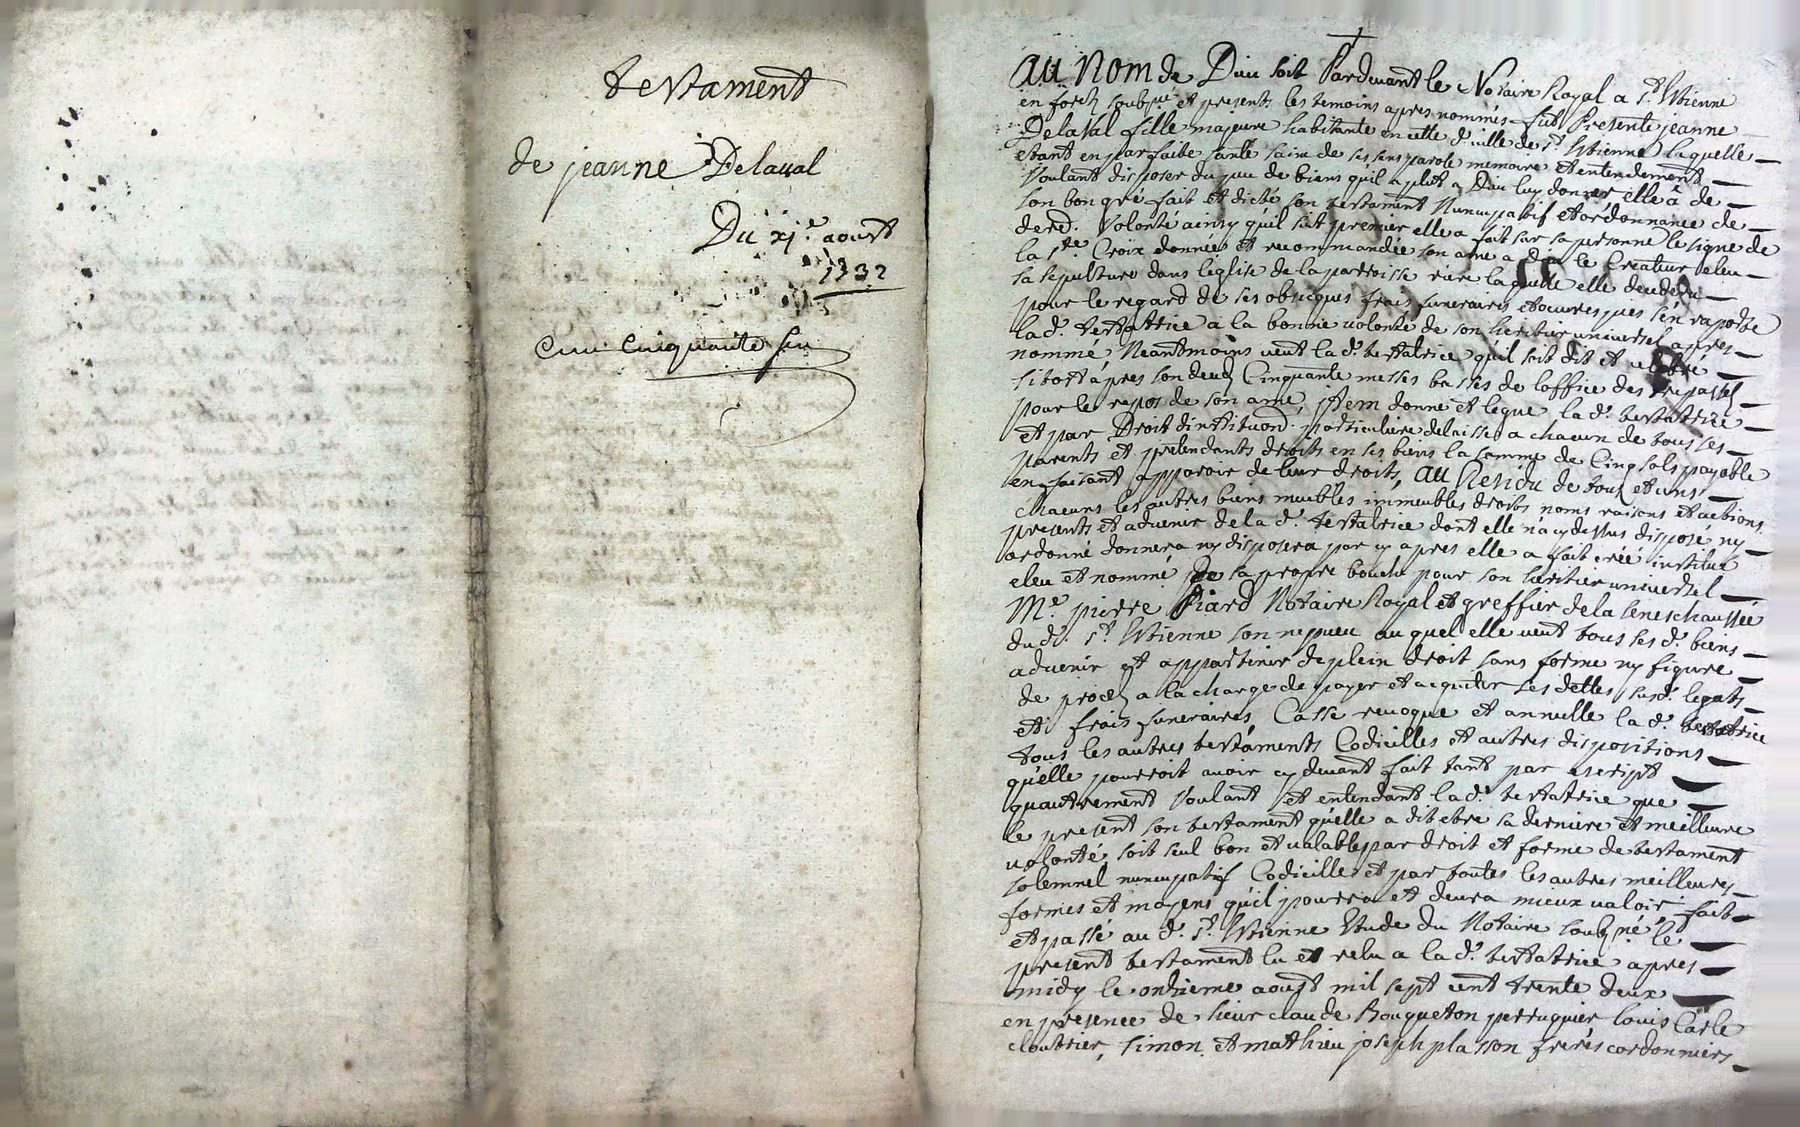 testament
de jeanne Delaval
Du xj.e aoust
1732
cinquante
Au Nom de Dieu soit Pardevant le Notaire Royal a St. Etienne
en forest soubsné et presents les temoins apres nommés fut Presente jeanne
Delaval fille majeure habitante en cette d. ville de St. Etienne laquelle
etant en parfaite santé saine de ses sens parole memoire et entendement
Voulant disposer du peu de biens quil a plut a Dieu luy donner elle a de
son bon gré fait et dicté son testament Nuncupatif et ordonnance de
dere. Volonté ainsy quil suit premier elle a fait sur sa personne le signe de
la ste. Croix donnée et recommandée son ame a Dieu le Createur eleu
sa sepulture dans leglise de la parroisse riere laquelle elle decedera
pour le regard de ses obseques frais funeraires et oeuvres pies sen raporte
la d. testatrice a la bonne volonté de son heritier universel apres
nommé Neantmoins veut la d. testatrice quil soit dit et celebré
sitost apres son deces Cinquante messes basses de loffice des trepassés
pour le repos de son ame, jtem donne et legue la d. testatrice
et par Droit dinstituon. particuliere delaisse a chacun de tous ses
parents et pretendants droits en ses biens la somme de Cinq sols payable
en faisant apparoir de leur droits, au Residu de tous et uns
chacuns les autres biens meubles immeubles droits noms raisons et actions
presents et advenir de la d. testatrice dont elle n'a cy dessus dispose ny
ordonné donnera ny disposera par cy apres elle a fait créé institué
eleu et nommé de sa propre bouche pour son heritier universel
Me. pierre Piard Notaire Royal et greffier de la seneschaussée
du d. St. Etienne son nepveu auquel elle veut tous ses d. biens
advenir et appartenir de plein droit sans forme ny figure
de proces a la charge de payer et acquitter ses dettes susd. legats
et frais funeraires, Casse revoque et annulle la d. testatrice
tous les autres testaments Codicilles et autres dispositions
quelle pourroit avoir cy devant fait tant par escript
quautrement Voulant et entendant la d. testatrice que
le present son testament quelle a dit etre sa derniere et meilleure
volonté soit seul bon et valable par droit et forme de testament
solemnel nuncupatif Codicille et par toutes les autres meilleures
formes et moyens quil pourra et devra mieux valoir fait
et passé au d. St. Etienne Etude du Notaire soubsné le
present testament lu et relu a la d. testatrice apres
midy le onzieme aoust mil sept cent trente deux
en presence de sieur claude Rouqueton perruquier louis Carle
cloutrier, simon et mathieu joseph plasson freres cordonniers